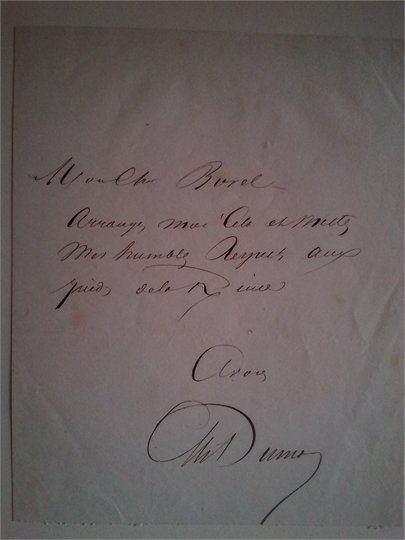 Mon Cher Borel
Arrangez moi Cela et Mettez
Mes humbles Respects aux
pieds de la Reine
A vous
Alex Dumas